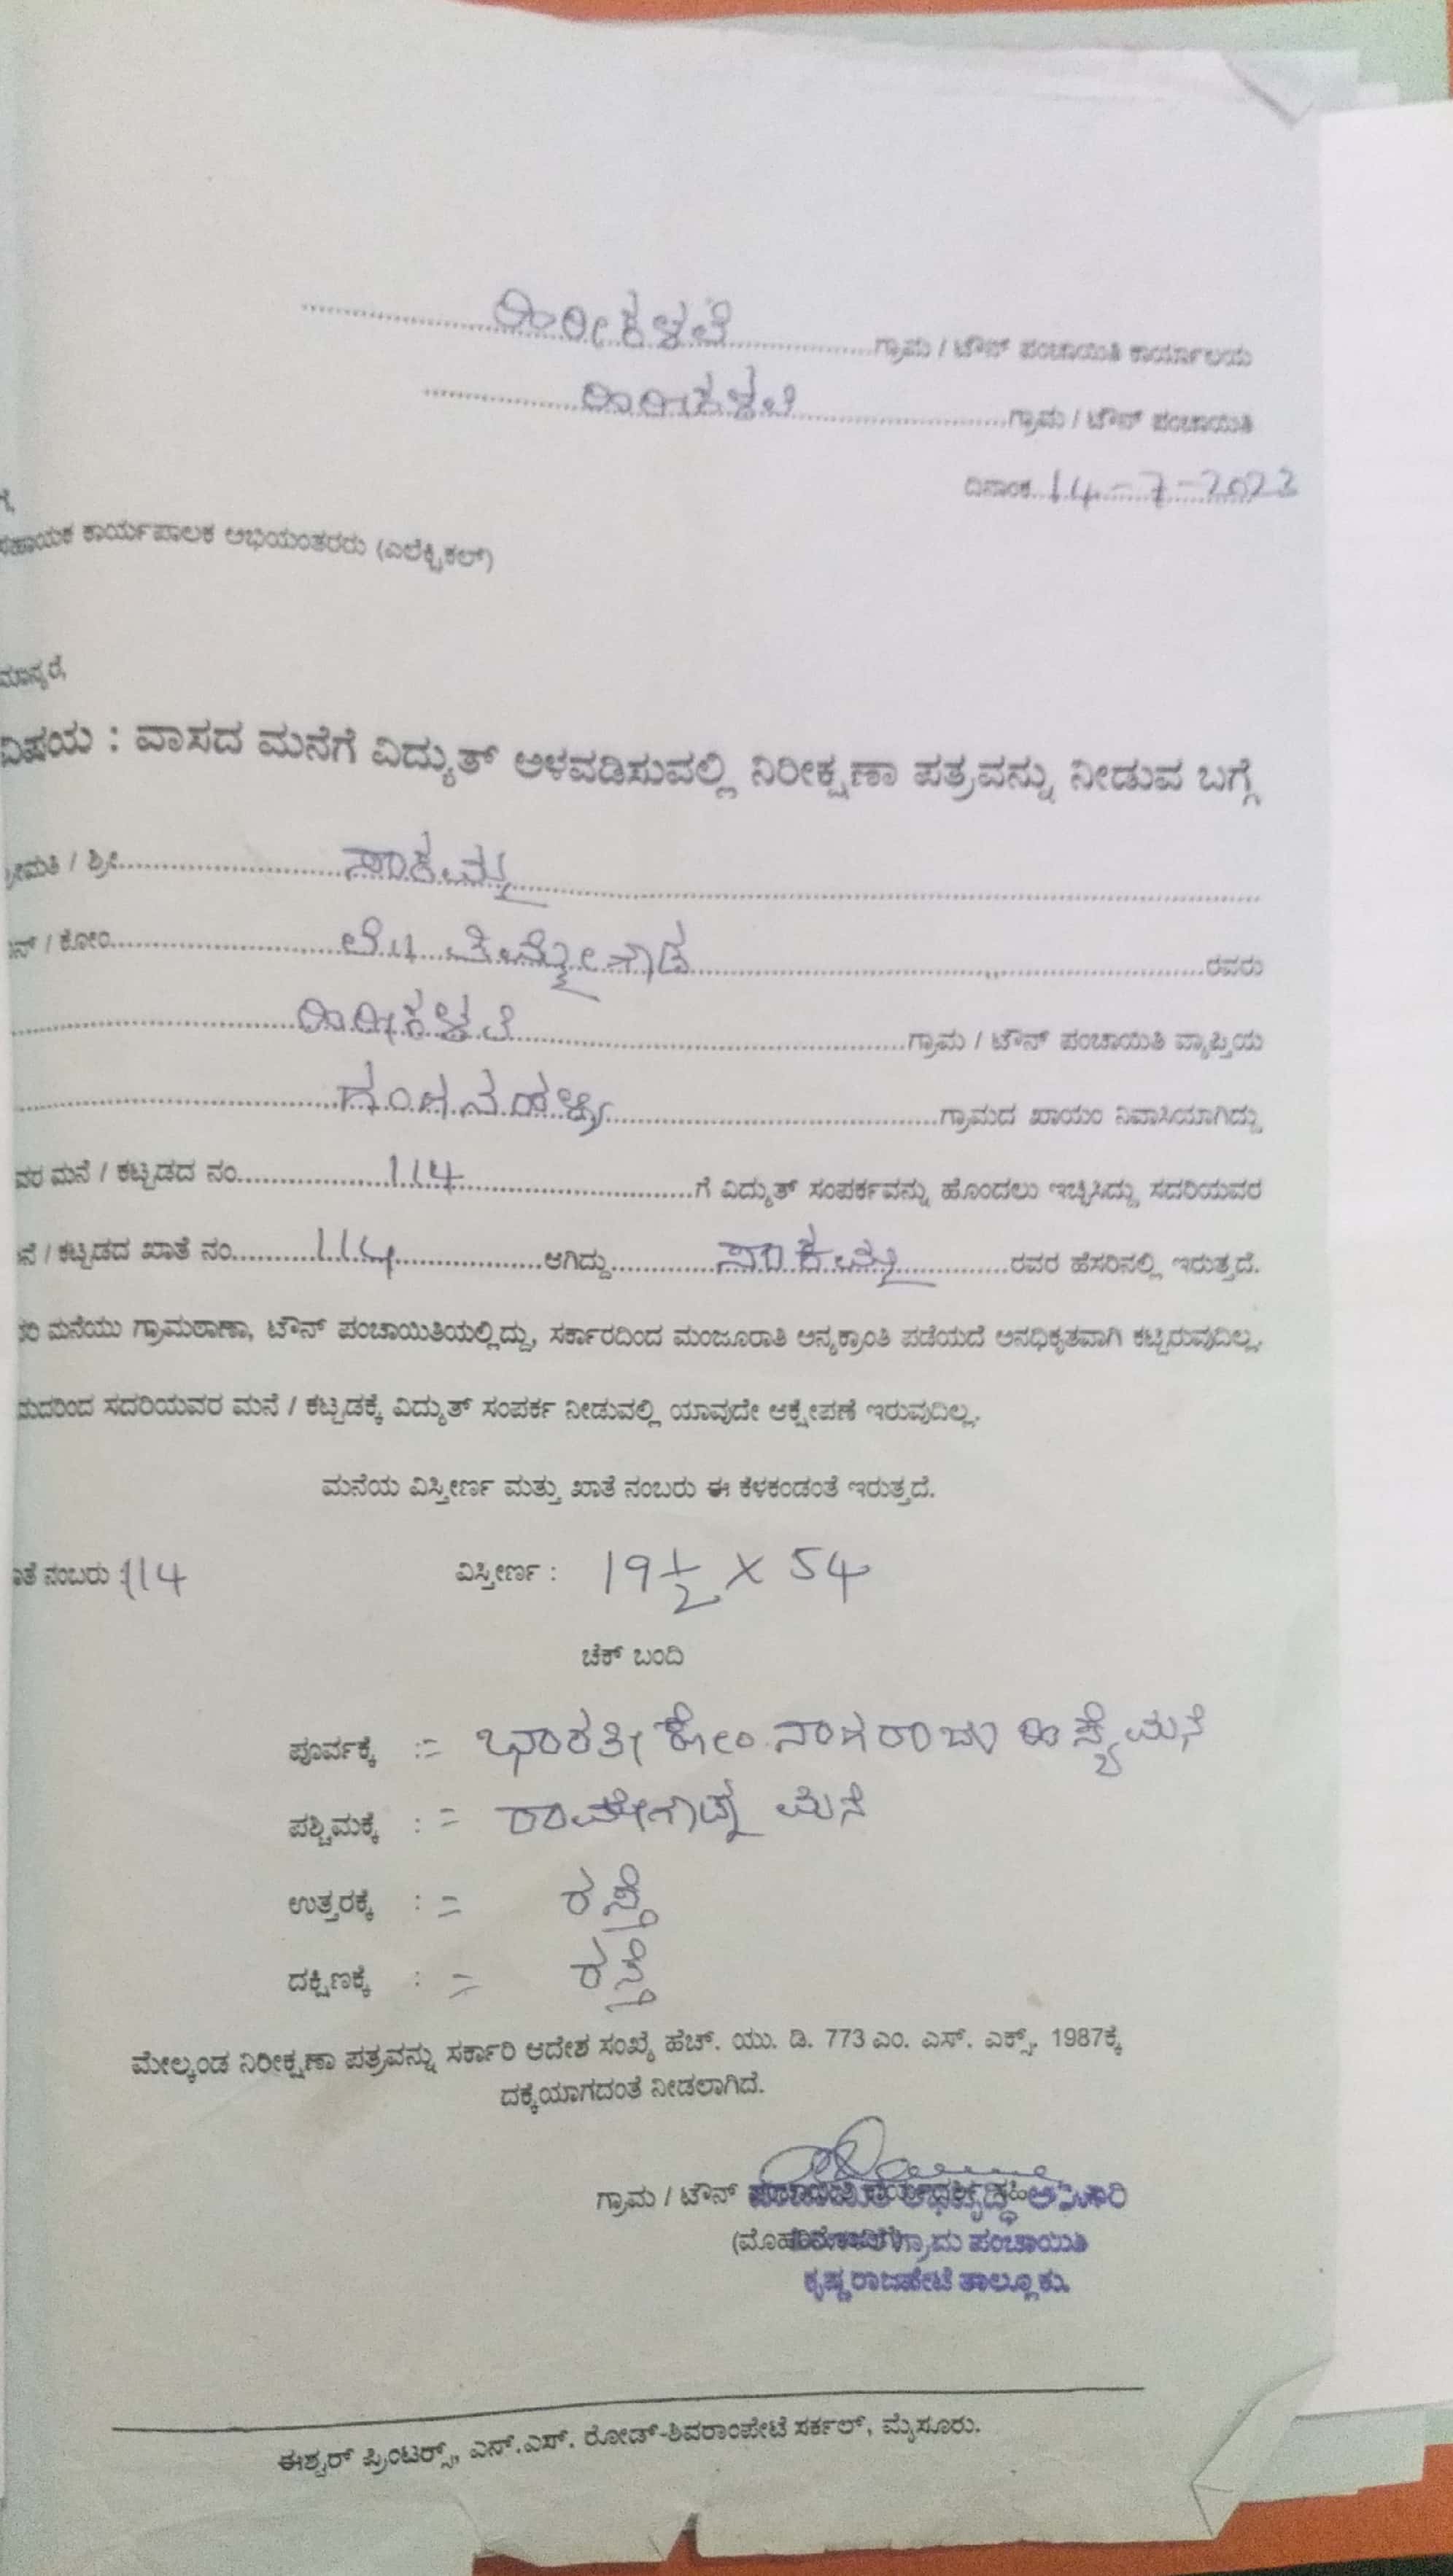 ಹಿರೀಕಳಲೆ ಗ್ರಾಮ / ಟೌನ್ ಪಂಚಾಯಿತಿ ಕಾರ್ಯಾಲಯ
ಹಿರೀಕಳಲೆ ಗ್ರಾಮ / ಟೌನ್ ಪಂಚಾಯಿತಿ
ದಿನಾಂಕ 14-7-2022
ಸಹಾಯಕ ಕಾರ್ಯಪಾಲಕ ಅಭಿಯಂತರರು (ಎಲೆಕ್ಟ್ರಿಕಲ್)
ಮಾನ್ಯರೆ,
ವಿಷಯ : ವಾಸದ ಮನೆಗೆ ವಿದ್ಯುತ್ ಅಳವಡಿಸುವಲ್ಲಿ ನಿರೀಕ್ಷಣಾ ಪತ್ರವನ್ನು ನೀಡುವ ಬಗ್ಗೆ
ಶ್ರೀಮತಿ / ಶ್ರೀ ಸಾಕಮ್ಮ
ಬಿನ್ / ಕೋಂ ಲೇ|| ತಿಮ್ಮೇಗೌಡ ರವರು
ಹಿರೀಕಳಲೆ ಗ್ರಾಮ / ಟೌನ್ ಪಂಚಾಯಿತಿ ವ್ಯಾಪ್ತಿಯ
ಗ್ರಾಮದ ಖಾಯಂ ನಿವಾಸಿಯಾಗಿದ್ದು
ವರ ಮನೆ / ಕಟ್ಟಡದ ನಂ. 114 ಗೆ ವಿದ್ಯುತ್ ಸಂಪರ್ಕವನ್ನು ಹೊಂದಲು ಇಚ್ಛಿಸಿದ್ದು ಸದರಿಯವರ
ನೆ / ಕಟ್ಟಡದ ಖಾತೆ ನಂ. 114 ಆಗಿದ್ದು ಸಾಕಮ್ಮ ರವರ ಹೆಸರಿನಲ್ಲಿ ಇರುತ್ತದೆ.
ಮನೆಯು ಗ್ರಾಮಠಾಣಾ, ಟೌನ್ ಪಂಚಾಯಿತಿಯಲ್ಲಿದ್ದು, ಸರ್ಕಾರದಿಂದ ಮಂಜೂರಾತಿ ಅನ್ಯಕ್ರಾಂತಿ ಪಡೆಯದೆ ಅನಧಿಕೃತವಾಗಿ ಕಟ್ಟಿರುವುದಿಲ್ಲ.
ಸದರಿಯವರ ಮನೆ / ಕಟ್ಟಡಕ್ಕೆ ವಿದ್ಯುತ್ ಸಂಪರ್ಕ ನೀಡುವಲ್ಲಿ ಯಾವುದೇ ಆಕ್ಷೇಪಣೆ ಇರುವುದಿಲ್ಲ.
ಮನೆಯ ವಿಸ್ತೀರ್ಣ ಮತ್ತು ಖಾತೆ ನಂಬರು ಈ ಕೆಳಕಂಡಂತೆ ಇರುತ್ತದೆ.
ಾತೆ ನಂಬರು : 114 ವಿಸ್ತೀರ್ಣ : 19 1/2 x 54
ಚೆಕ್ ಬಂದಿ
ಪೂರ್ವಕ್ಕೆ := ಭಾರತೀ ಕೋಂ ನಾಗರಾಜು ಮನೆ
ಪಶ್ಚಿಮಕ್ಕೆ := ಮನೆ
ಉತ್ತರಕ್ಕೆ := ರಸ್ತೆ
ದಕ್ಷಿಣಕ್ಕೆ := ರಸ್ತೆ
ಮೇಲ್ಕಂಡ ನಿರೀಕ್ಷಣಾ ಪತ್ರವನ್ನು ಸರ್ಕಾರಿ ಆದೇಶ ಸಂಖ್ಯೆ ಹೆಚ್. ಯು. ಡಿ. 773 ಎಂ. ಎಸ್. ಎಕ್ಸ್. 1987ಕ್ಕೆ
ದಕ್ಕೆಯಾಗದಂತೆ ನೀಡಲಾಗಿದೆ.
ಗ್ರಾಮ / ಟೌನ್
ಗ್ರಾಮ ಪಂಚಾಯಿತಿ
ಕೃಷ್ಣರಾಜಪೇಟೆ ತಾಲ್ಲೂಕು.
ಈಶ್ವರ್ ಪ್ರಿಂಟರ್ಸ್, ಎನ್.ಎಸ್. ರೋಡ್-ಶಿವರಾಂಪೇಟೆ ಸರ್ಕಲ್, ಮೈಸೂರು.